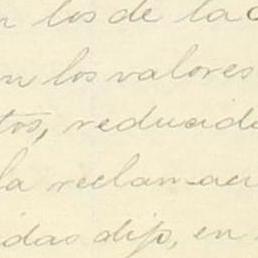 n los de la
n los valores
tos, reducido
la reclamaci
idas dijo, en